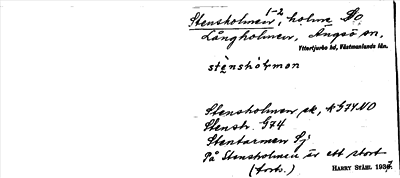 1-2
Stensholmen, holme SO
Långholmen, Ängsö sn,
Yttertjurbo hd, Västmanlands län.
stènshòlmən
Stensholmen sk, k G74 NO
Stenstr. G74
Stentarmen Sj
På Stensholmen är ett stort
(fork.) HARRY STÅHL 1937.